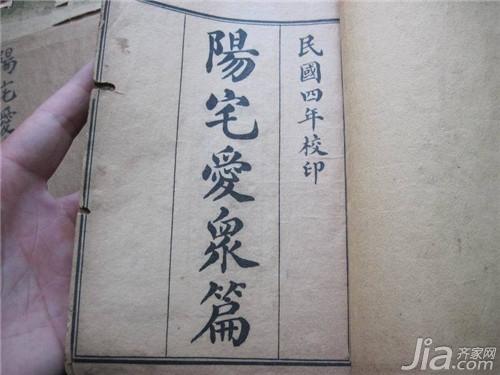 民國四年校印
陽宅愛眾篇
陽宅愛
Jia.com
齐家网